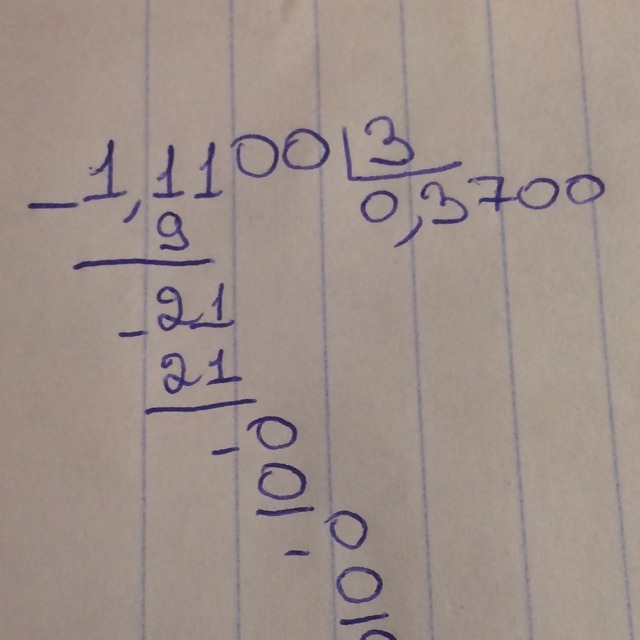 -1,1100 3
0,3700
9
-21
21
-0
0
-0
0
0